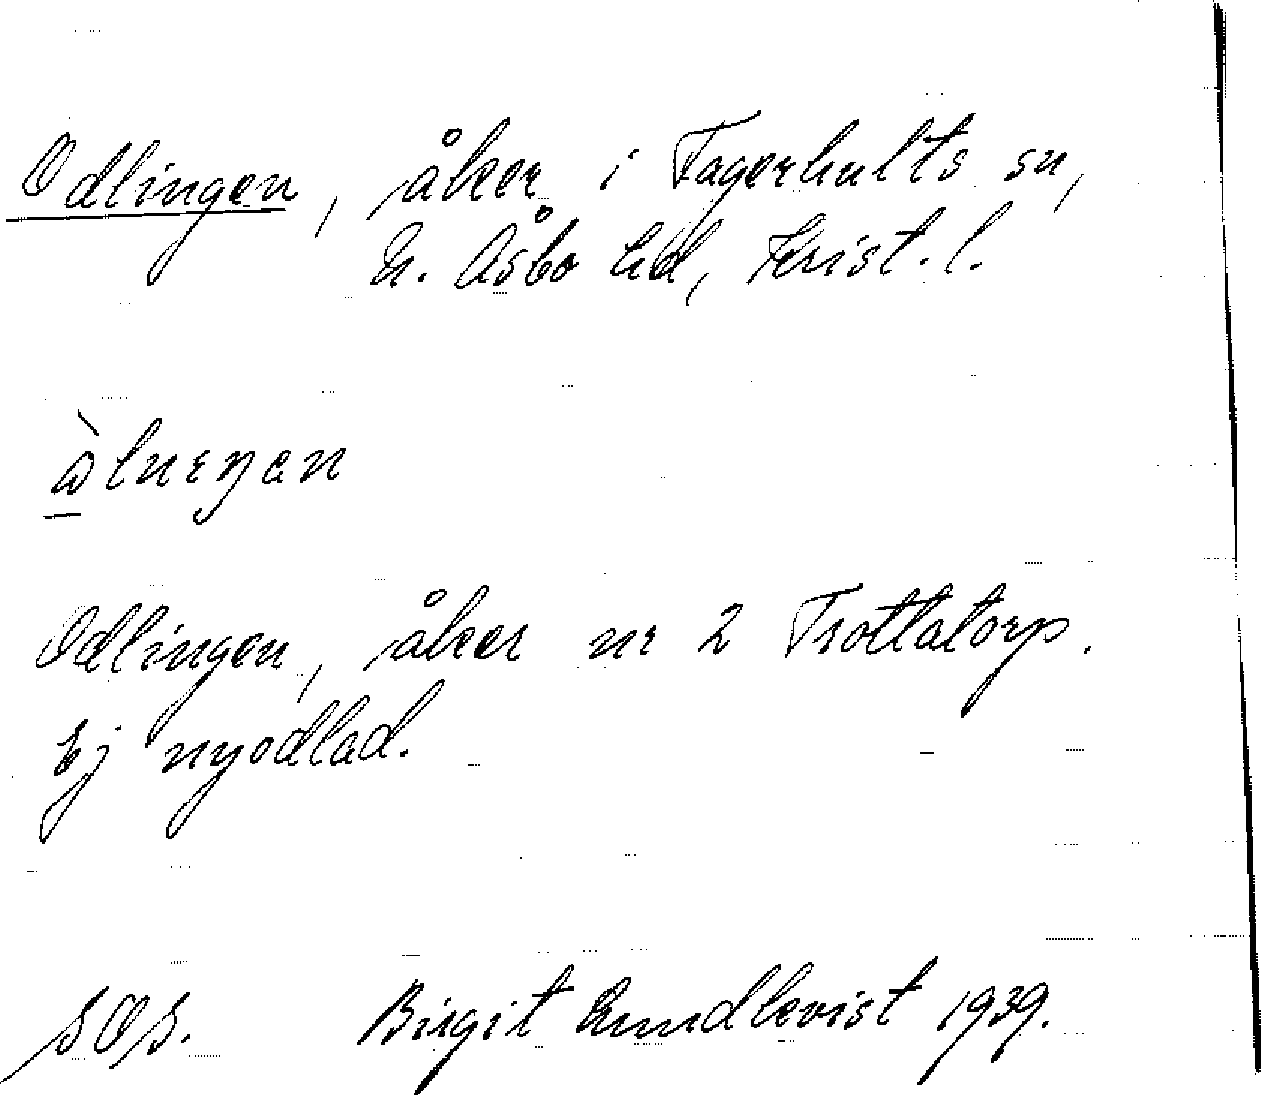 Odlingen, åker i Fagerhults sn,
N. Åsbo hd, Krist. l.
Odlingen, åker nr 2 Trottatorp.
Ej nyodlad.
SOS. Birgit Lundkvist 1939.